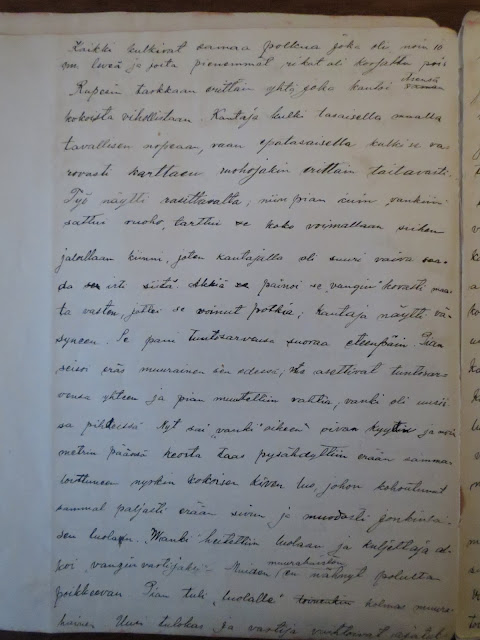 Kaikki kulkivat samaa polkua joka oli noin 10
cm. leveä ja josta pienemmät rikat oli korjattu pois
Rupesin tarkkaan erittäin yhtä, joka kantoi itsensä
kokoista vihollistaan. Kantaja kulki tasaisella maalla
tavallisen nopeaan, vaan epätasaisella kulki se va-
rovasti karttaen ruohojakin erittäin taitavasti.
Työ näytti rasittavalta; niin pian kuin vankiin
sattui ruoho, tarttui se koko voimallaan siihen
jaloillaan kiinni, joten kantajalla oli suuri vaiva saa-
da sen irti siitä. Äkkiä painoi se vangin kovasti maa-
ta vasten, jottei se voinut potkia; kantaja näytti vä-
syneen. Se pani tuntosarvensa suoraa eteenpäin. Pian
seisoi eräs muurainen sen edessä; asettivat tuntosar-
vensa yhteen ja pian muutettiin vahtia; vanki oli uusis-
sa pihdeissä Nyt sai "vanki" oikean kyydin ja noin
metrin päässä keosta taas pysähdyttiin erään sammal
nyrkin kokoisen kiven luo, johon kohoutunut
sammal paljasti erään sivun ja muodosti jonkinlai-
sen luolan. Vanki heitettiin luolaan ja kuljettaja al-
koi "vangin vartijaksi". Muiden muurahaisten en nähnyt polusta
poikkeevan. Pian tuli "luolalle" kolmas muura-
hainen Uusi tulokas ja vartija